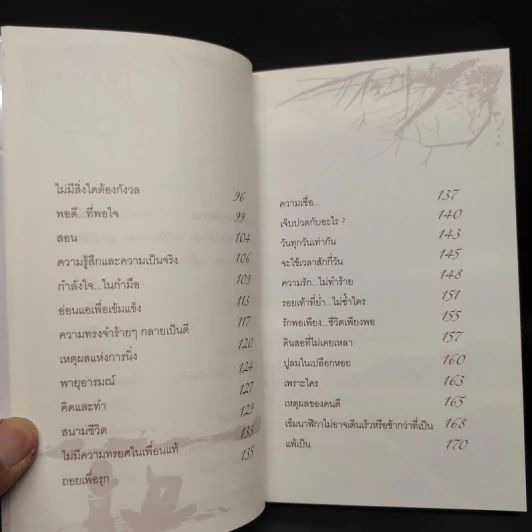 ไม่มีสิ่งใดต้องกังวล 96
พอดี...ที่พอใจ 99
สอน 104
ความรู้สึกและความเป็นจริง 106
กำลังใจ...ในกำมือ 109
อ่อนแอเพื่อเข้มแข็ง 113
ความทรงจำร้ายๆ กลายเป็นดี 117
เหตุผลแห่งการนิ่ง 120
พายุอารมณ์ 124
คิดและทำ 127
สนามชีวิต 129
ไม่มีความทรยศในเพื่อนแท้ 133
ถอยเพื่อรุก 135
ความเชื่อ... 137
เจ็บปวดกับอะไร ? 140
วันทุกวันเท่ากัน 143
จะใช้เวลาสักกี่วัน 145
ความรัก...ไม่ทำร้าย 148
รอยเท้าที่ย่ำ...ไม่ซ้ำใคร 151
รักพอเพียง...ชีวิตเพียงพอ 155
ดินสอที่ไม่เคยเหลา 157
ปูลมในเปลือกหอย 160
เพราะใคร 163
เหตุผลของคนดี 165
เข็มนาฬิกาไม่อาจเดินเร็วหรือช้ากว่าที่เป็น 168
แท้เป็น 170